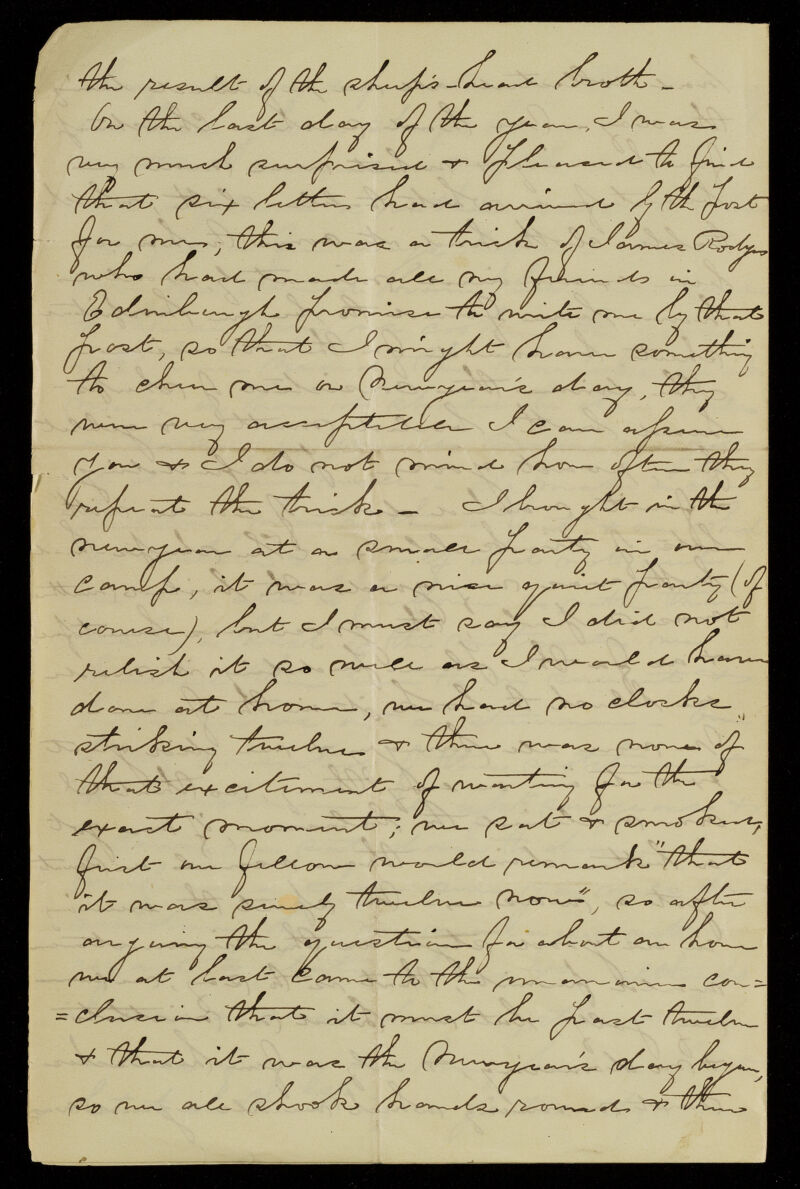 the result of the sheep's-head broth -
On the last day of the year, I was
very much surprised & pleased to find
that six letters had arrived by the post
for me, this was a trick of James Rodger
who had made all my friends in
Edinburgh promise to write me by that
post, so that I might have something
to cheer me on Newyear's day, they
were very acceptable I can assure
you & I do not mind how often they
repeat the trick - I brought in the
newyear at a small party in our
camp, it was a nice quiet party (of
course), but I must say I did not
relish it so well as I would have
done at home, we had no clocks
striking twelve & there was none of
that excitement of waiting for the
exact moment; we sat & smoked,
first one fellow would remark "that
it was surely twelve now", so after
arguing the question for about an hour
we at last came to the unanimous con=
=clusion that it must be past twelve
& that it was the Newyear's day begun,
so we all shook hands round & then